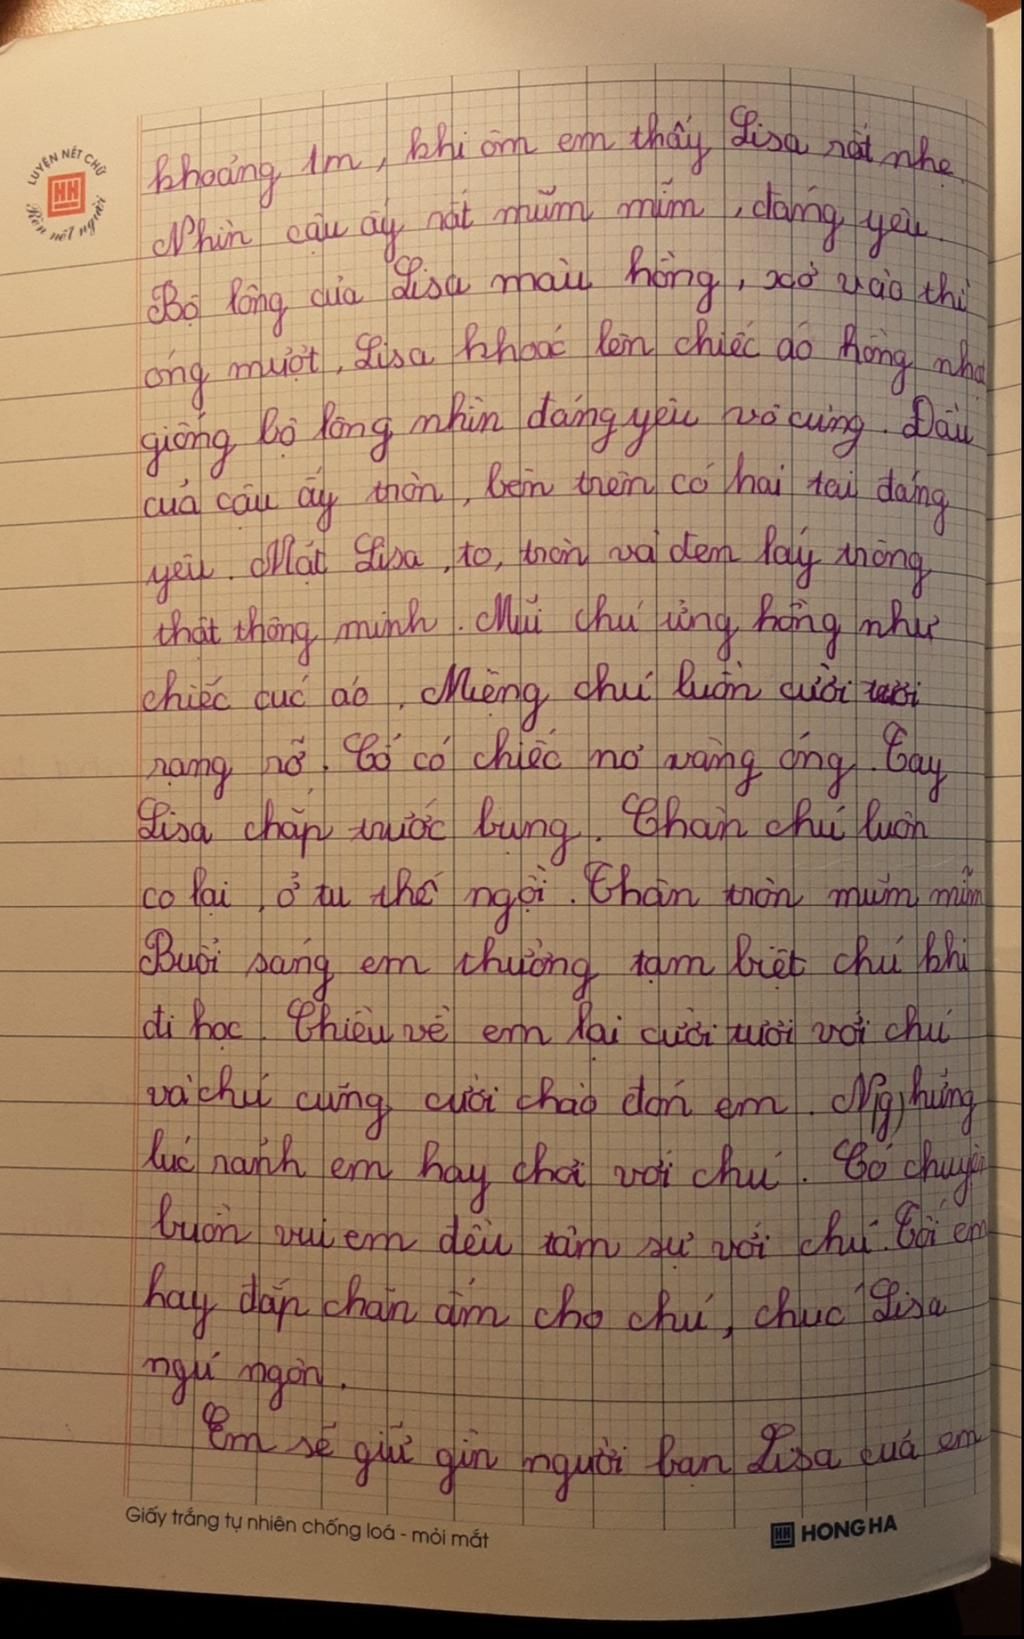 LUYỆN NẾT CHỮ
Rèn nết người
khoảng 1m, khi ôm em thấy Lisa rất nhẹ.
Nhìn cậu ấy rất mũm mĩm, đáng yêu.
Bộ lông của Lisa màu hồng, sờ vào thì
óng mượt. Lisa khoác lên chiếc áo hồng nhạ
giống bộ lông nhìn đáng yêu vô cùng. Đầu
của cậu ấy tròn, bên trên có hai tai đáng
yêu. Mắt Lisa, to, tròn và đen láy trông
thật thông minh. Mũi chú ửng hồng như
chiếc cúc áo. Miệng chú luôn cười tươi
rạng rỡ. Cổ có chiếc nơ vàng óng. Tay
Lisa chắp trước bụng. Chân chú luôn
co lại, ở tư thế ngồi. Thân tròn mũm mĩm
Buổi sáng em thường tạm biệt chú khi
đi học. Chiều về em lại cười tươi với chú
và chú cũng cười chào đón em. Những
lúc rảnh em hay chơi với chú. Có chuyện
buồn vui em đều tâm sự với chú. Tối em
hay đắp chăn ấm cho chú, chúc Lisa
ngủ ngon.
Em sẽ giữ gìn người bạn Lisa của em
Giấy trắng tự nhiên chống loá - mỏi mắt
HONG HA